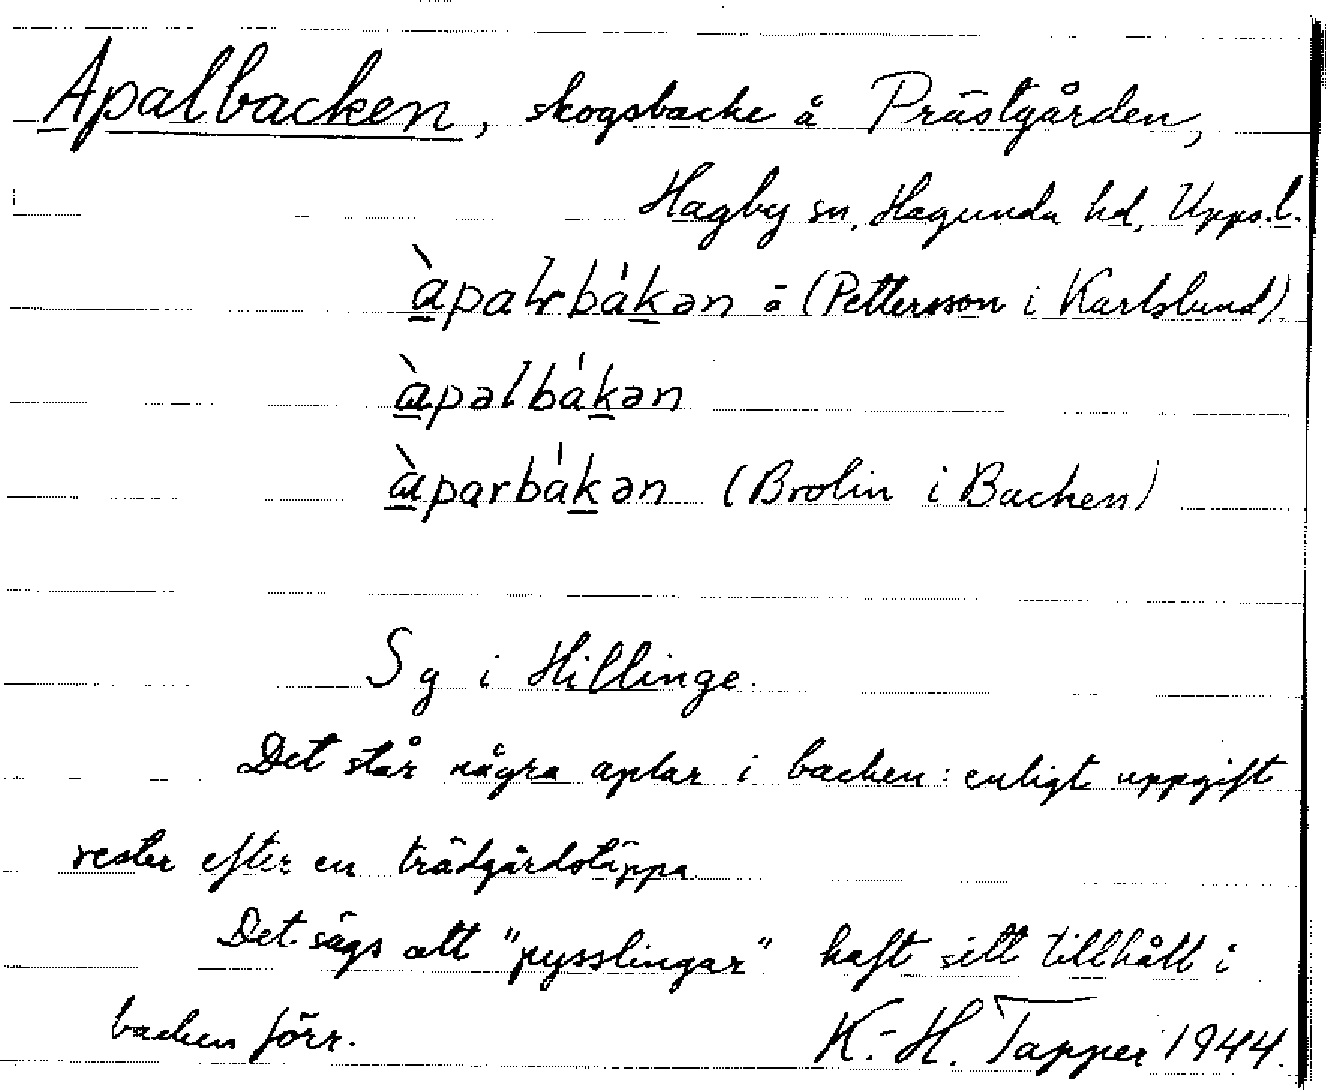 Apalbacken, skogsbacke å Prästgården,
Hagby sn, Hagunda hd, Upps.l.
àpaɫrbákən å (Pettersson i Karlslund)
àpəlbákən
àparbákən (Brolin i Backen)
Sg i Hillinge.
Det står några aplar i backen: enligt uppgift
rester efter en trädgårdstäppa.
Det sägs att "pysslingar" haft sitt tillhåll i
backen förr. K.-H. Tapper 1944.